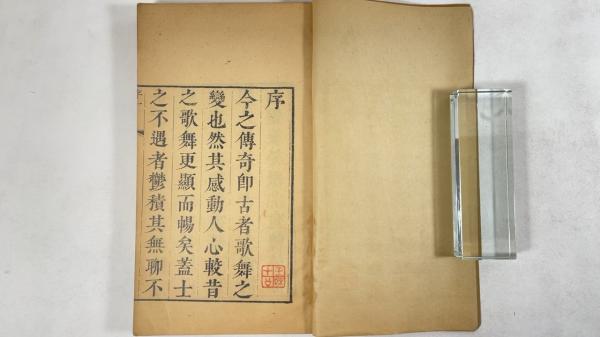 序
今之傳奇即古者歌舞之
變也然其感動人心較昔
之歌舞更顯而暢矣蓋士
之不遇者鬱積其無聊不